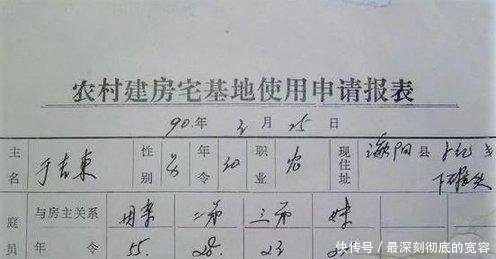 农村建房宅基地使用申请报表
90.年 3月 25日
主名 于吉东 性别 男 年令 30 职业 农 现住址 海阳县
庭员 与房主关系 母亲 二弟 三弟 妹
年令 55. 28. 23
快传号 / 最深刻彻底的宽容